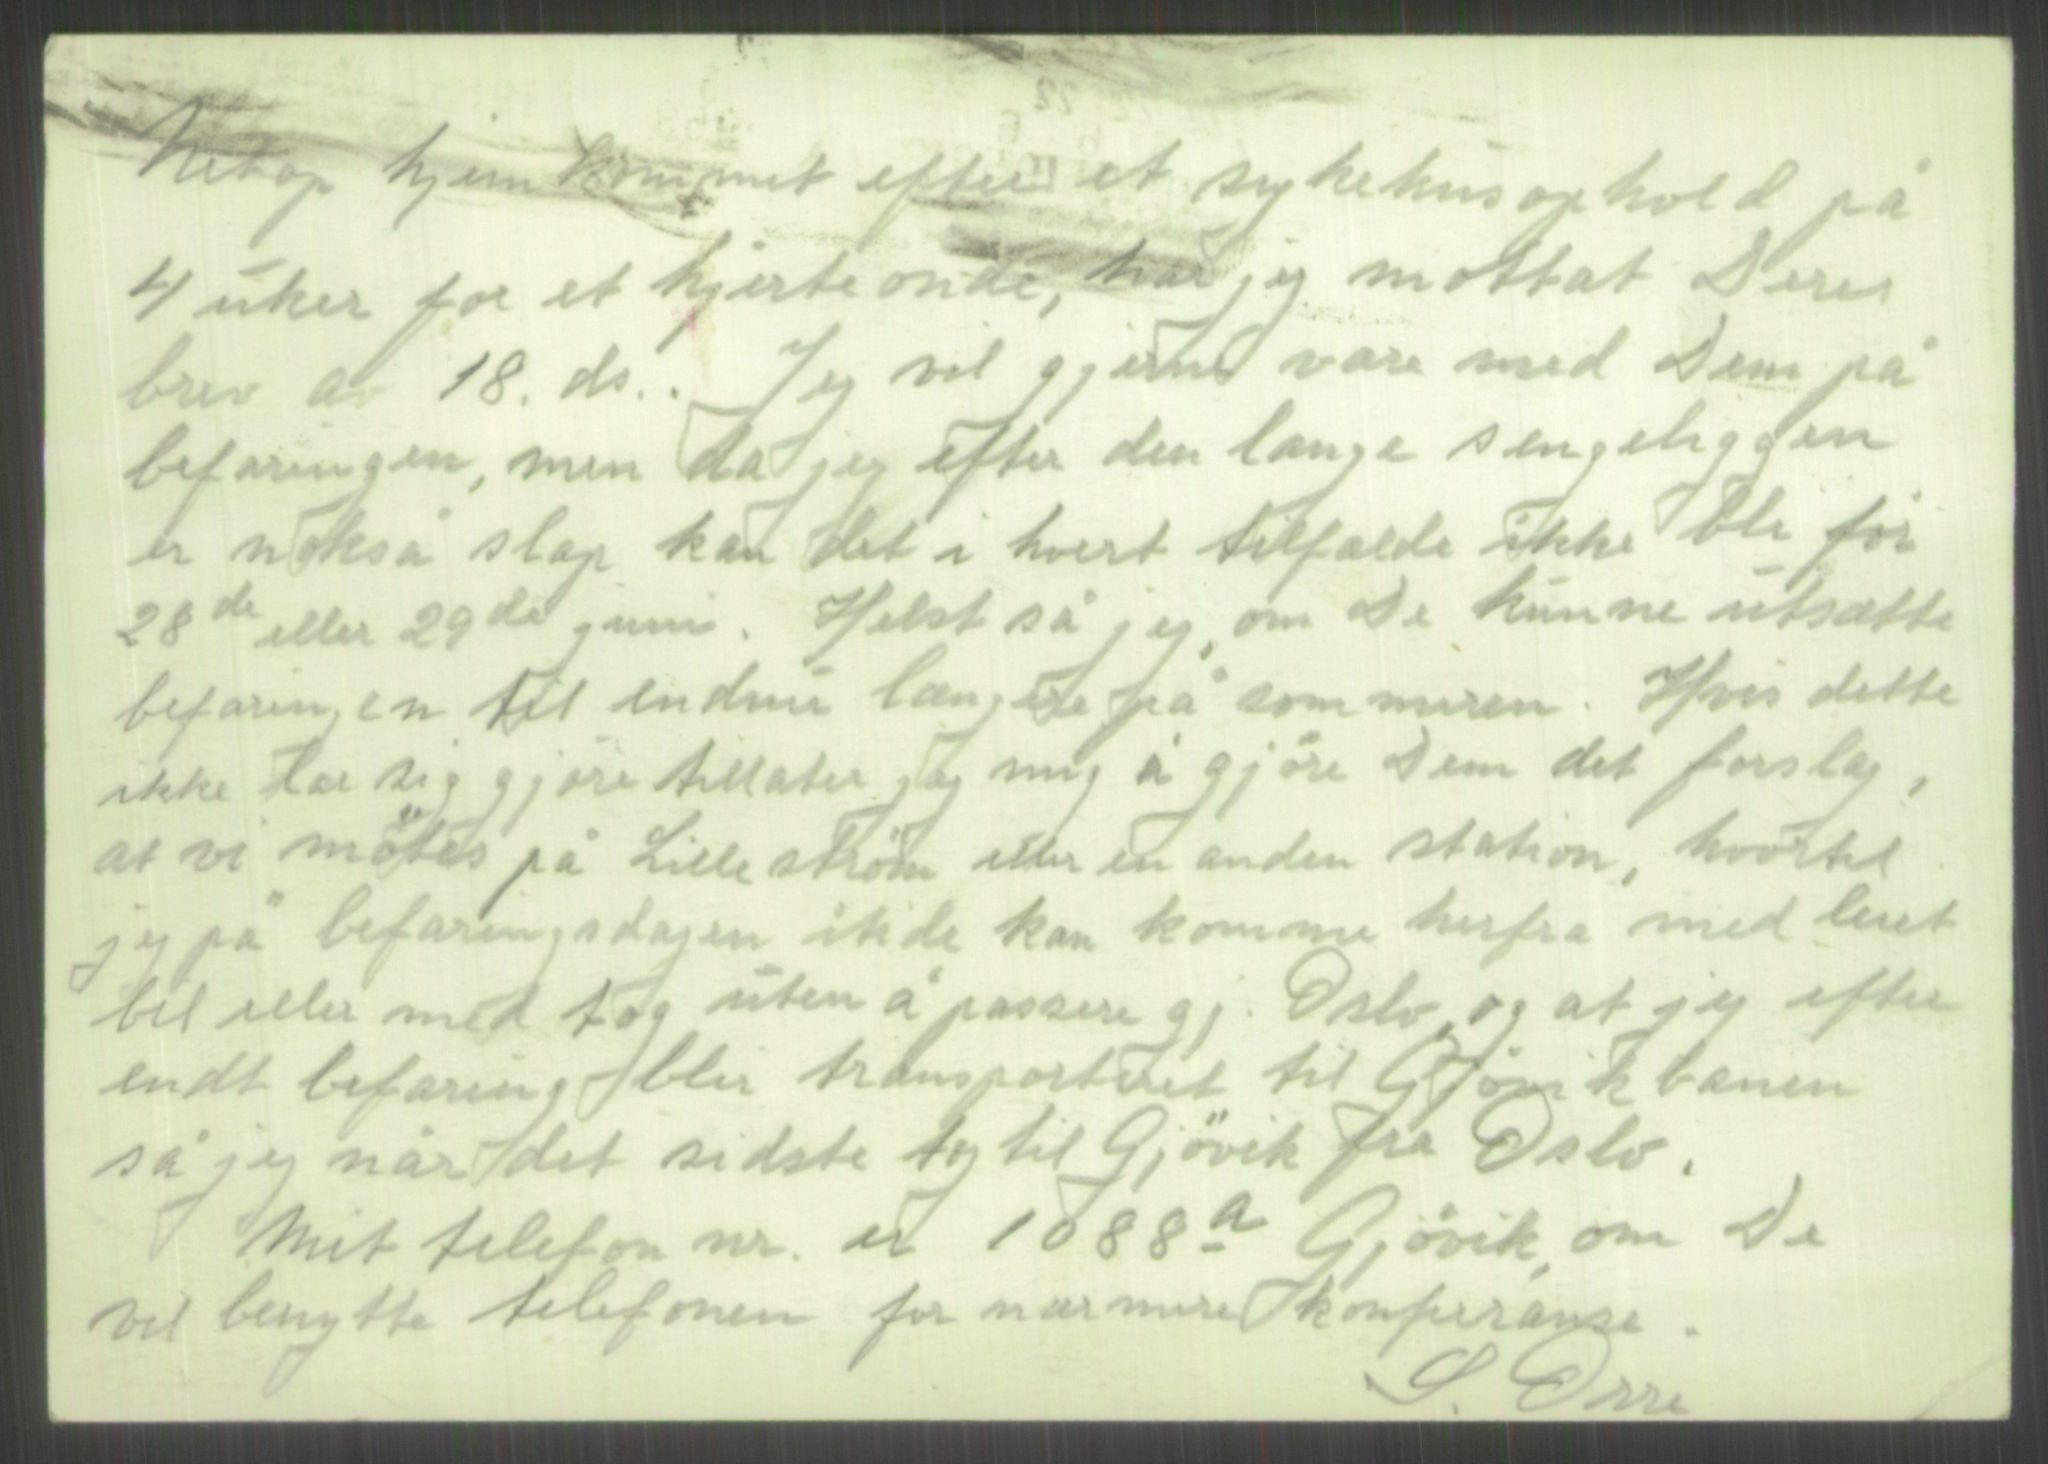 Netop hjemkommet efter et sykehusophold på
4 uker for et hjerteonde, har jeg mottat Deres
brev av 18. ds.. Jeg vil gjerne være med Dem på
befaringen, men da jeg efter den lange sengeliggen
er nokså slap kan det i hvert tilfælde ikke bli før
28de eller 29de juni. Helst så jeg, om De kunne utsætte
befaringen til endnu længere på sommeren. Hvis dette
ikke lar sig gjøre tillater jeg mig å gjøre Dem det forslag,
at vi møtes på Lillestrøm eller en anden station, hvortil
jeg på befaringsdagen itide kan komme herfra med leiet
bil eller med tog uten å passere gj. Oslo, og at jeg efter
endt befaring blir transporteret til Gjøvikbanen
så jeg når det sidste tog til Gjövik fra Oslo.
Mit telefon nr. er 1088a Gjøvik, om De
vil benytte telefonen for nærmere konferanse.
S. Orre